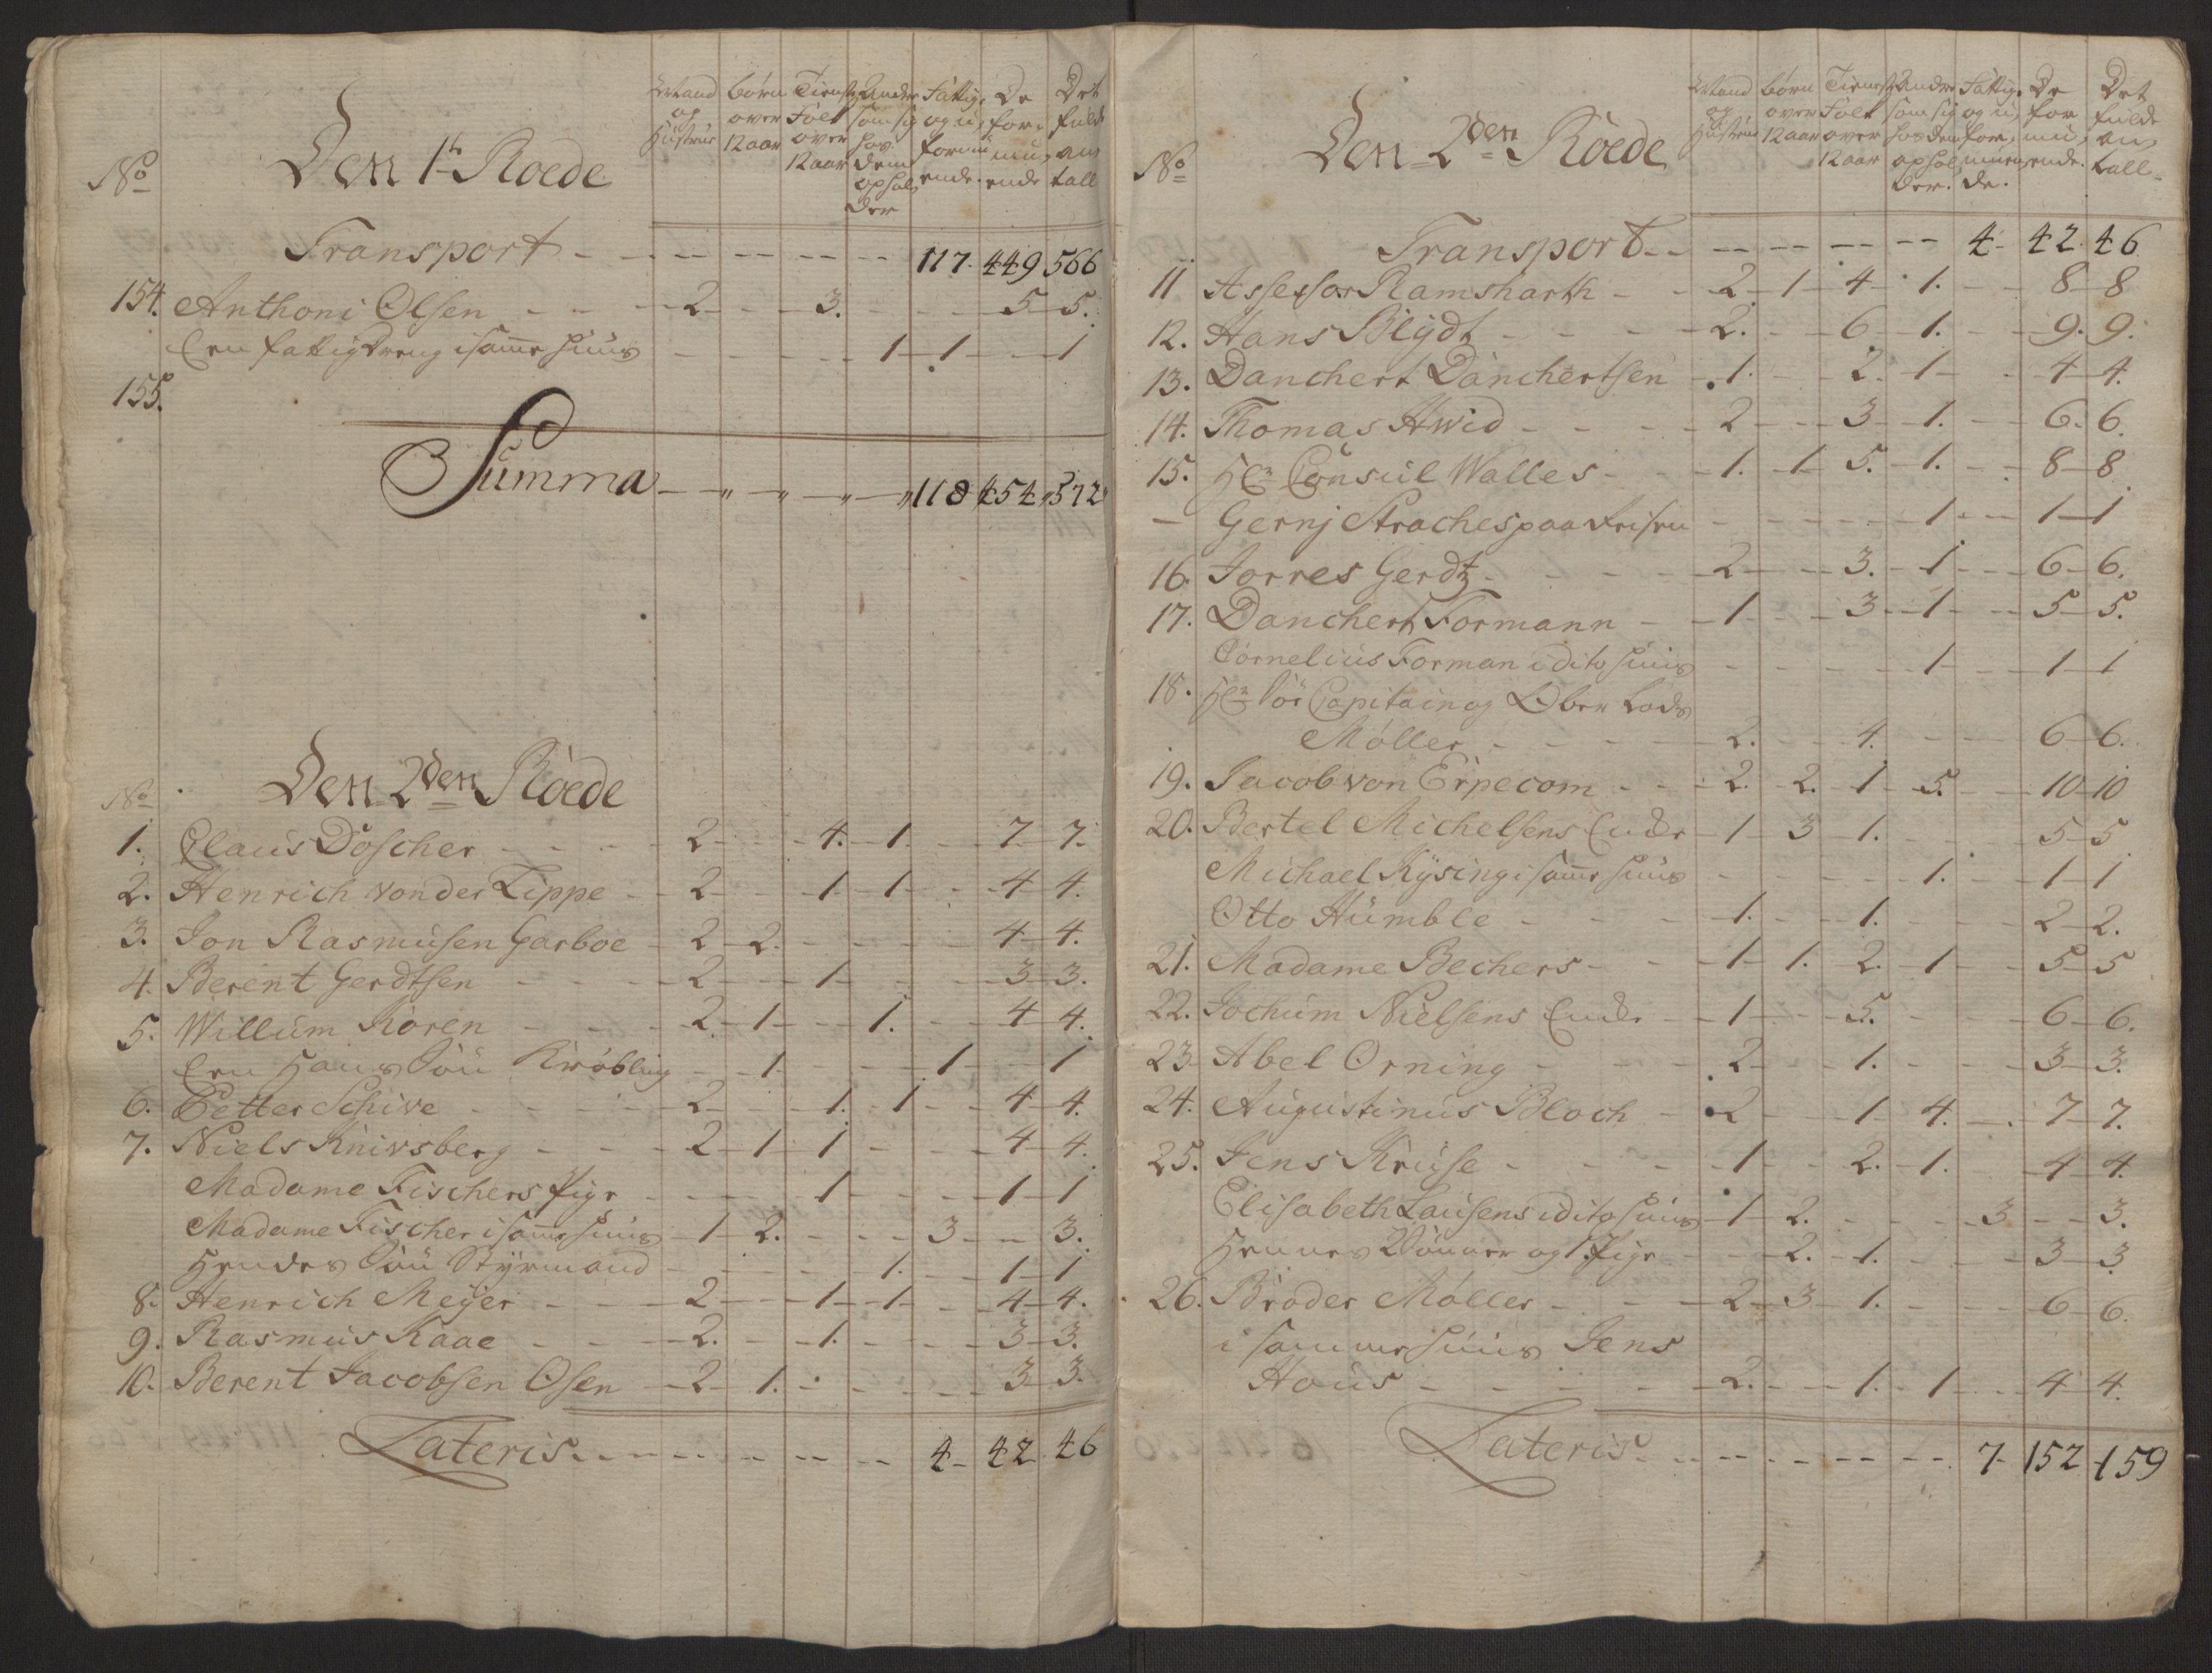 No
Den 1te Roede
Mand og Hustrue
børn over 12 aar
Tieneste Folk over 12 aar
Andre som sig hos dem opholder
Fattige og uformuende
De formuende
Det fulde antall
Transport - - - - - - 117. 449 566
154. Anthoni Olsen - - - 2 - - 3. - - - 5 - 5.
Een fattig dreng i samme huus - - - - 1 - 1 - - 1
155.
Summa - - - - 118 454 572
Den 2den Roede
No
1. Claus Döscher - - - 2 - - 4. - 1. - - 7 - 7.
2. Henrich von der Lippe - 2 - - 1 - 1 - - 4 - 4.
3. Jon Rasmusen Garboe - 2 - 2. - - - - 4 - 4.
4. Berent Gerdtsen - - - 2 - - 1 - - - 3 - 3.
5. Willum Koren - - - 2. - 1 - - 1. - - 4 - 4.
Een hans Søn Krøbling - - 1 - - - 1 - - 1
6. Petter Schive - - - 2 - - 1. - 1 - - 4 - 4.
7. Niels Knivsberg - - - 2 - 1 - 1 - - - 4 - 4.
Madame Fischers Pige - - - 1 - - - 1 - 1
Madame Fischer i samme huus - 1 - 2. - - - 3 - - 3.
Hendes Søn Styrmand - - - - 1. - - 1 - 1
8. Henrich Meyer - - - 2 - - 1 - 1 - - 4 - 4.
9. Rasmus Kaae - - - 2. - - 1. - - - 3 - 3.
10. Berent Jacobsen Osen - 2 - 1. - - - - 3 - 3.
Lateris - - - - - - 4 - 42. 46
No
Den 2den Roede
Mand og Hustrue
børn over 12 aar
Tieneste Folk over 12 aar
Andre som sig hos dem opholder.
Fattige og uformuende.
De formuende.
Det fulde antall
Transport - - - - - - 4 - 42. 46
11 Assessor Ramsharth - - 2 - 1 - 4 - 1. - - 8 - 8
12. Hans Blÿdt - - - 2. - - 6 - 1. - - 9. 9.
13. Danchert Danchertsen - 1. - - 2. - 1 - - 4 - 4.
14. Thomas Hwid - - - 2 - - 3 - 1. - - 6. 6.
15. Hr Consul Walles - - 1. - 1 - 5. - 1. - - 8 - 8
- Gernj Straches paa Reisen - - - - 1 - - 1 - 1
16. Jorres Gerdtz - - - 2 - - 3. - 1 - - 6 - 6.
17. Danchert Formann - - 1 - - 3 - 1 - - 5 - 5.
Cornelius Forman i dito huus - - - - 1 - - 1 - 1
18. Hr Søe Capitain og Ober Lods
Møller - - - 2. - - 4. - - - 6 - 6.
19. Jacob von Erpecom - - 2. 2. 1 - 5. - - 10 - 10
20. Bertel Michelsens Encke - 1 - 3 - 1. - - - 5 - 5
Michael Rÿsing i samme huus - - - - 1. - - 1 - 1
Otto Humble - - - 1. - - 1. - - - 2 - 2.
21. Madame Bechers - - 1 - 1. 2. - 1 - - 5 - 5
22. Jochum Nielsens Encke - 1 - - 5. - - - 6 - 6.
23 Abel Orning - - - 2 - - 1. - - - 3 - 3.
24. Augustinus Bloch - 2 - - 1 - 4. - - 7 - 7.
25. Jens Kruse - - - 1 - - 2. - 1. - - 4 - 4.
Elisabeth Lausens i dito huus - 1 - 2. - - - 3 - - 3.
Hennes Sönner og 1 Pige - - 2. - 1. - - - 3 - 3
26. Broder Møller - - 2 - 3 - 1. - - - 6 - 6.
i samme huus Jens
Hous - - - 2. - - 1. - 1 - - 4 - 4.
Lateris - - - - - - 7 - 152 - 159